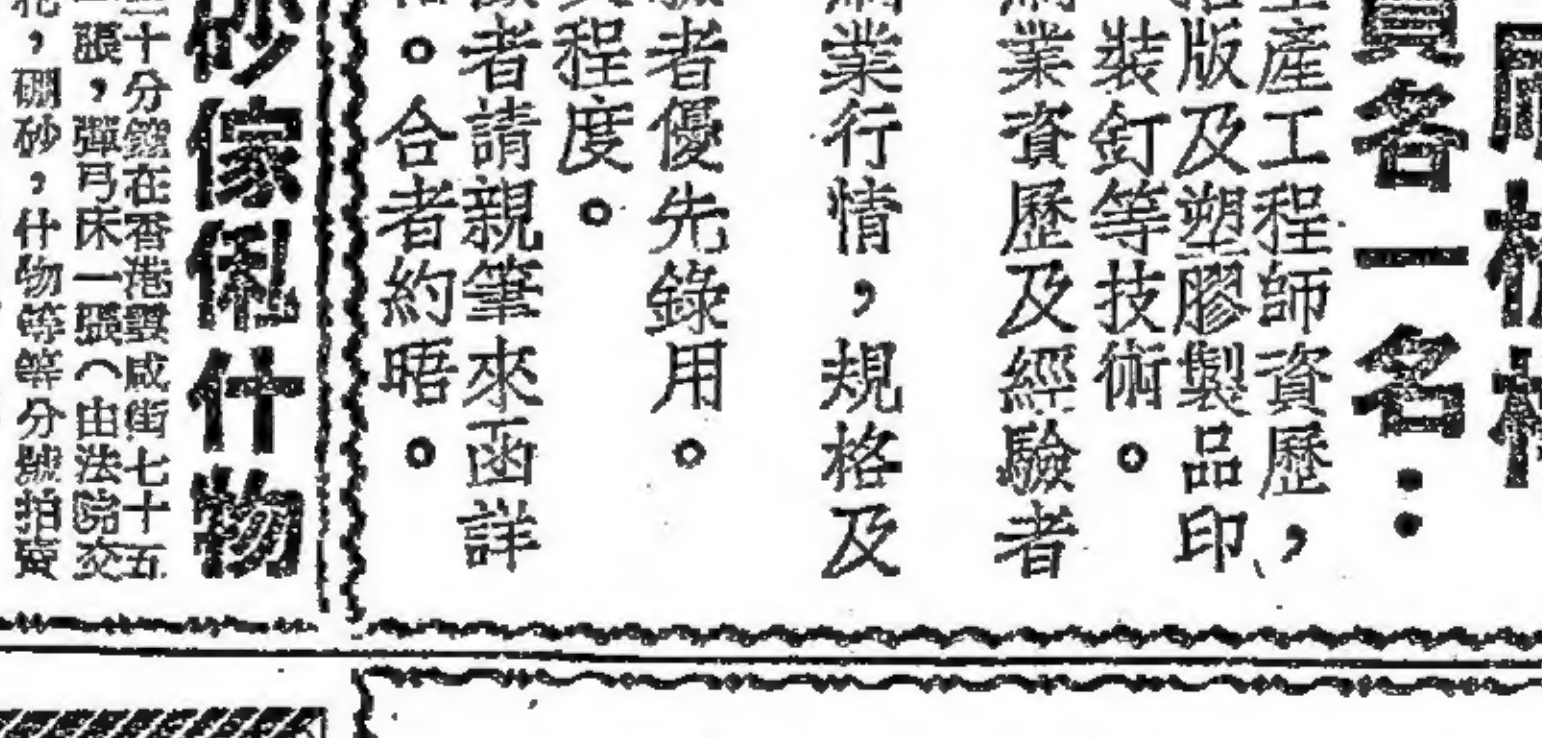 員各一名：
產工程師資歷，
版及塑膠製品印
裝釘等技術。
業資歷及經驗者
業行情，規格及
者優先錄用。
程度。
者請親筆來函詳
。合者約晤。
砂傢俬什物
十分鐘在香港雲咸街七十五
張，彈弓床一張（由法院交
，硼砂，什物等等分號拍賣